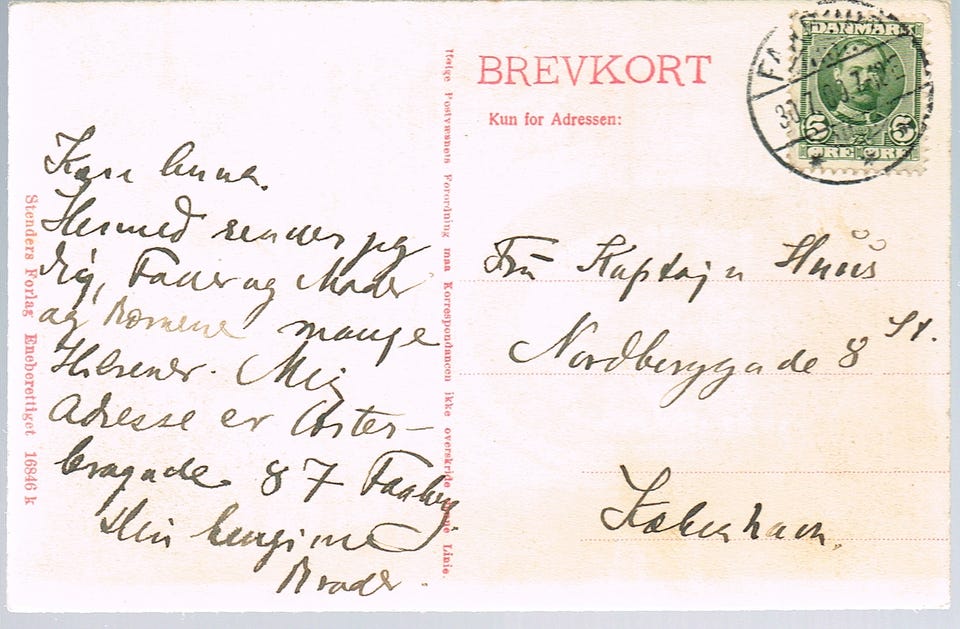 BREVKORT
Kun for Adressen:
DANMARK
5 5
ØRE ØRE
30.7.
Kære Anna.
Hermed sender jeg
dig, Fader og Moder
og Børnene mange
Hilsener. Min
Adresse er Øster-
bragade 87 Faaborg
Din
Broder.
Fru Kaptajn Huus
Nordberggade 8 St.
København.
Ifølge Postvæsnets Forordning maa Korrespondancen ikke overskride denne Linie.
Stenders Forlag Eneberettiget 16846 k